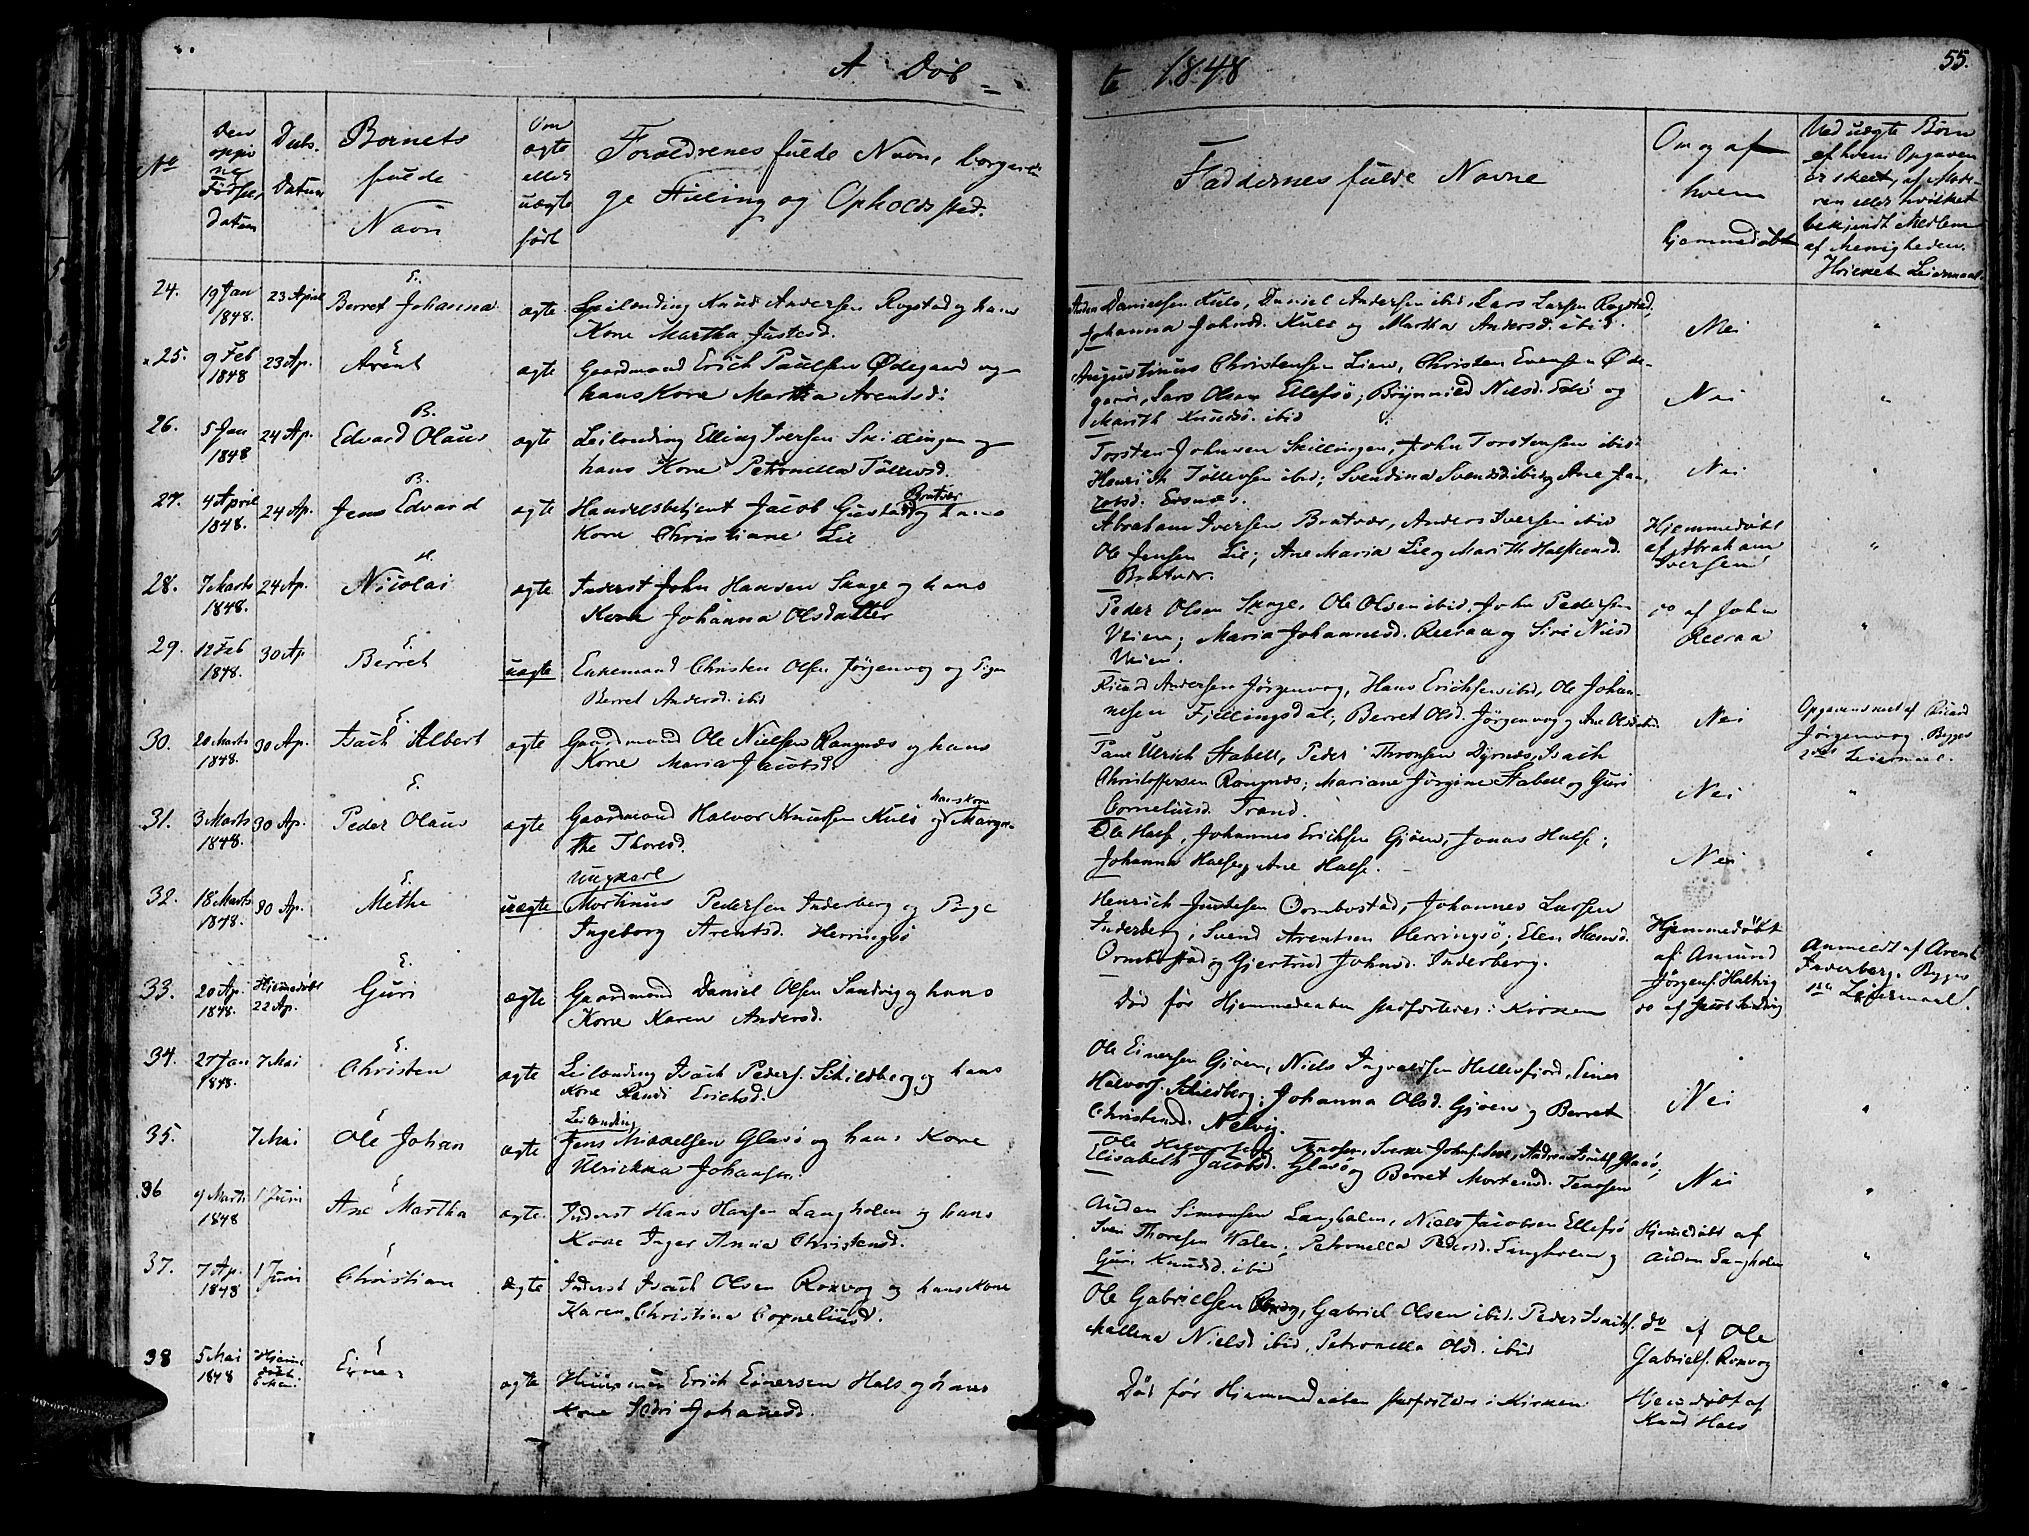 A Døb=
te 1848
55.
No
Den
oppi
ne
Fødsels
Datum
Daabs.
Datum
Barnets
fulde
Navn
Om
ægte
eller
uægte
født
Forældrenes fulde Navn, borgerli
ge Stilling og Opholdssted.
Faddernes fulde Navne
Om og af
hvem
hjemmedøbt
Ved uægte Børn
af hvem Opgaven
er skeet, af Mode-
ren eller hvilket
bekjendt Medlem
af Menigheden.
Hvilket Leiermaal
24.
19 Jan
1848.
23 April
E.
Berret Johanna
ægte
Leilending Knud Andersen Rogstad og hans
Kone Martha Justesd.
Danielsen Kuls, Daniel Andersen ibid, Lars Larsen Rogstad,
Johanna Johnsd. Kuls og Martha Andersd. ibid.
Nei
"
25.
9 Feb
1848
23 Ap.
E
Arent
ægte
Gaardmand Erich Paulsen Ødegaard og
hans Kone Martha Arentsd:
Augustinus Christensen Lian, Christen Evensen Øde-
gaard, Lars Olsen Ellefsø; Brynnild Nielsd. og
Marith Knudsd. ibid
Nei
"
26.
5 Jan
1848
24 Ap.
B.
Edvard Olaus
ægte
Leilending Elling Iversen Skillingen og
hans Kone Petronella Tøllevsd.
Torsten Johnsen Skillingen, John Torstensen ibid
Henrich Tøllefsen ibid; Svendina Svendsd. ibid og Ane Ja-
cobsd.
Nei
"
27.
4 April
1848.
24 Ap.
B.
Jens Edvard
ægte
Handelsbetjent Jacob Gustad Bratvær og hans
Kone Christiane Lie
Abraham Iversen Bratvær, Anders Iversen ibid
Ole Jensen Lie; Ane Maria Lie og Marith Halsteensd.
Bratvær.
Hjemmedøbt
af Abraham
Iversen
"
28.
7 Marts
1848.
24 Ap.
H.
Nicolai
ægte
Inderst John Hansen Skage og hans
Kone Johanna Olsdatter
Peder Olsen Skage, Ole Olsen ibid, John Pedersen
Veien; Maria Johannesd. Reeraa og Siri Nilsd
Veien.
do af John
Reeraa
"
29.
12 Feb
1848.
30 Ap.
E.
Berret
uægte
Enkemand Christen Olsen Jørgenvog og Pigen
Berret Andersd. ibid
Andersen Jørgenvog, Hans Erichsen ibid, Ole Johan-
nesen Fjellingsdal; Berret Olsd. Jørgenvog og Ane Olsd. ibid.
Nei
Opgaven skeet af
Jørgenvog. Begges
Leiermaal.
30.
20 Marts
1848.
30 Ap.
E.
Isach Albert
ægte
Gaardmand Ole Nielsen Rangnæs og hans
Kone Maria Jacobsd.
Paul Ulrich Stabell, Peder Thronsen Dyrnæs, Isach
Christoffersen Rangnæs; Mariane Jørgine Stabell og Guri
Corneliusd. Trand.
Nei
"
31.
3 Marts
1848.
30 Ap.
E.
Peder Olaus
ægte
Gaardmand Halvor Knudsen Kuls og hans Kone Margre-
the Thoresd.
Ole Halse, Johannes Erichsen Gjøen, Jonas Halse;
Johanna Halse og Ane Halse.
Nei
"
32.
18 Marts
1848.
30 Ap.
E.
Methe
uægte
Ungkarl
Martinus Pedersen Inderberg og Pige
Ingeborg Arentsd. Herringsø
Henrich Justesen Ormbostad, Johannes Larsen
Inderberg, Svend Arentsen Herringsø; Elen Hansd.
Ormbostad og Gjertrud Johnsd. Inderberg.
Hjemmedøbt
af Amund
Jørgens. Haltvig
Anmeldt af Arent
Inderberg. Begges
1ste Leiermaal.
33.
20 Ap.
1848.
Hjemedøbt
22 Ap.
E.
Guri
ægte
Gaardmand Daniel Olsen Sandvig og hans
Kone Karen Andersd.
Død før Hjemmedaaben stadfæstedes i Kirken
do af Jacob Sandvig
34.
27 Jan
1848.
7 Mai
E.
Christen
ægte
Leilending Isach Peders. Schildberg og hans
Kone Randi Erichsd.
Ole Einersen Gjøen, Niels Ingvaldsen Hellesfjord, Einer
Halvors. Schildberg; Johanna Olsd. Gjøen og Berret
Christensd. Nelvig.
Nei
"
35.
7 Mai
E
Ole Johan
ægte
Leilending
Jens Mikkelsen Glasø og hans Kone
Ulrickka Johansen
Ole Halvorsen Tenosen, Sverke Johns. , Andreas Glasø,
Elisabeth Jacobsd. Glasø og Berret Mortensd. Tenosen
Nei
"
36
9 Marts
1848
1 Juni
E
Ane Martha
ægte
Inderst Hans Hansen Langholen og hans
Kone Inger Anna Christensd.
Auden Simonsen Langholen, Niels Jacobsen Ellefsø
Sven Thoresen Walen; Petronella Pedersd. Langholen og
Guri Knudsd. ibid
Hjemedøbt af
Auden Langholen
"
37.
7 Ap.
1848
1 Juni
E
Christian
ægte
Inderst Isach Olsen Roxvog og hans Kone
Karen Christina Corneliusd.
Ole Gabrielsen Roxvog, Gabriel Olsen ibid. Peder Isachs.
Mallena Nielsd ibid, Petronella Olsd. ibid
do af Ole
Gabriels. Roxvog
"
38
5 Mai
1848
Hjeme
døbt
E
Einer
ægte
Huusmand Erich Einersen Hals og hans
Kone Johannesd.
Død før Hjemmedaaben stadfæstedes i Kirken
Hjemedøbt af
Knud Hals